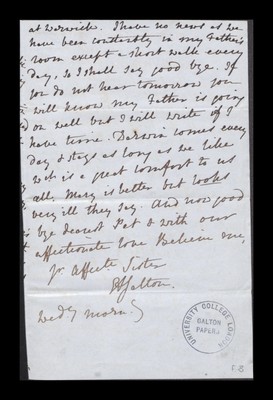 at Warwick. I have no news as we
have been constantly in my Father's
room except a short walk every
day, so I shall say good bye. If
you do not hear tomorrow you
will know my Father is going
on well but I will write if I
have time. Darwin comes every
day & stays as long as we like
wch is a great comfort to us
all. Mary is better but looks
very ill they say. And now good
bye dearest Pet & with our
affectionate love Believe me,
yr affecte Sister
Galton.
Wedy morng
UNIVERSITY COLLEGE LONDON
GALTON
PAPERS